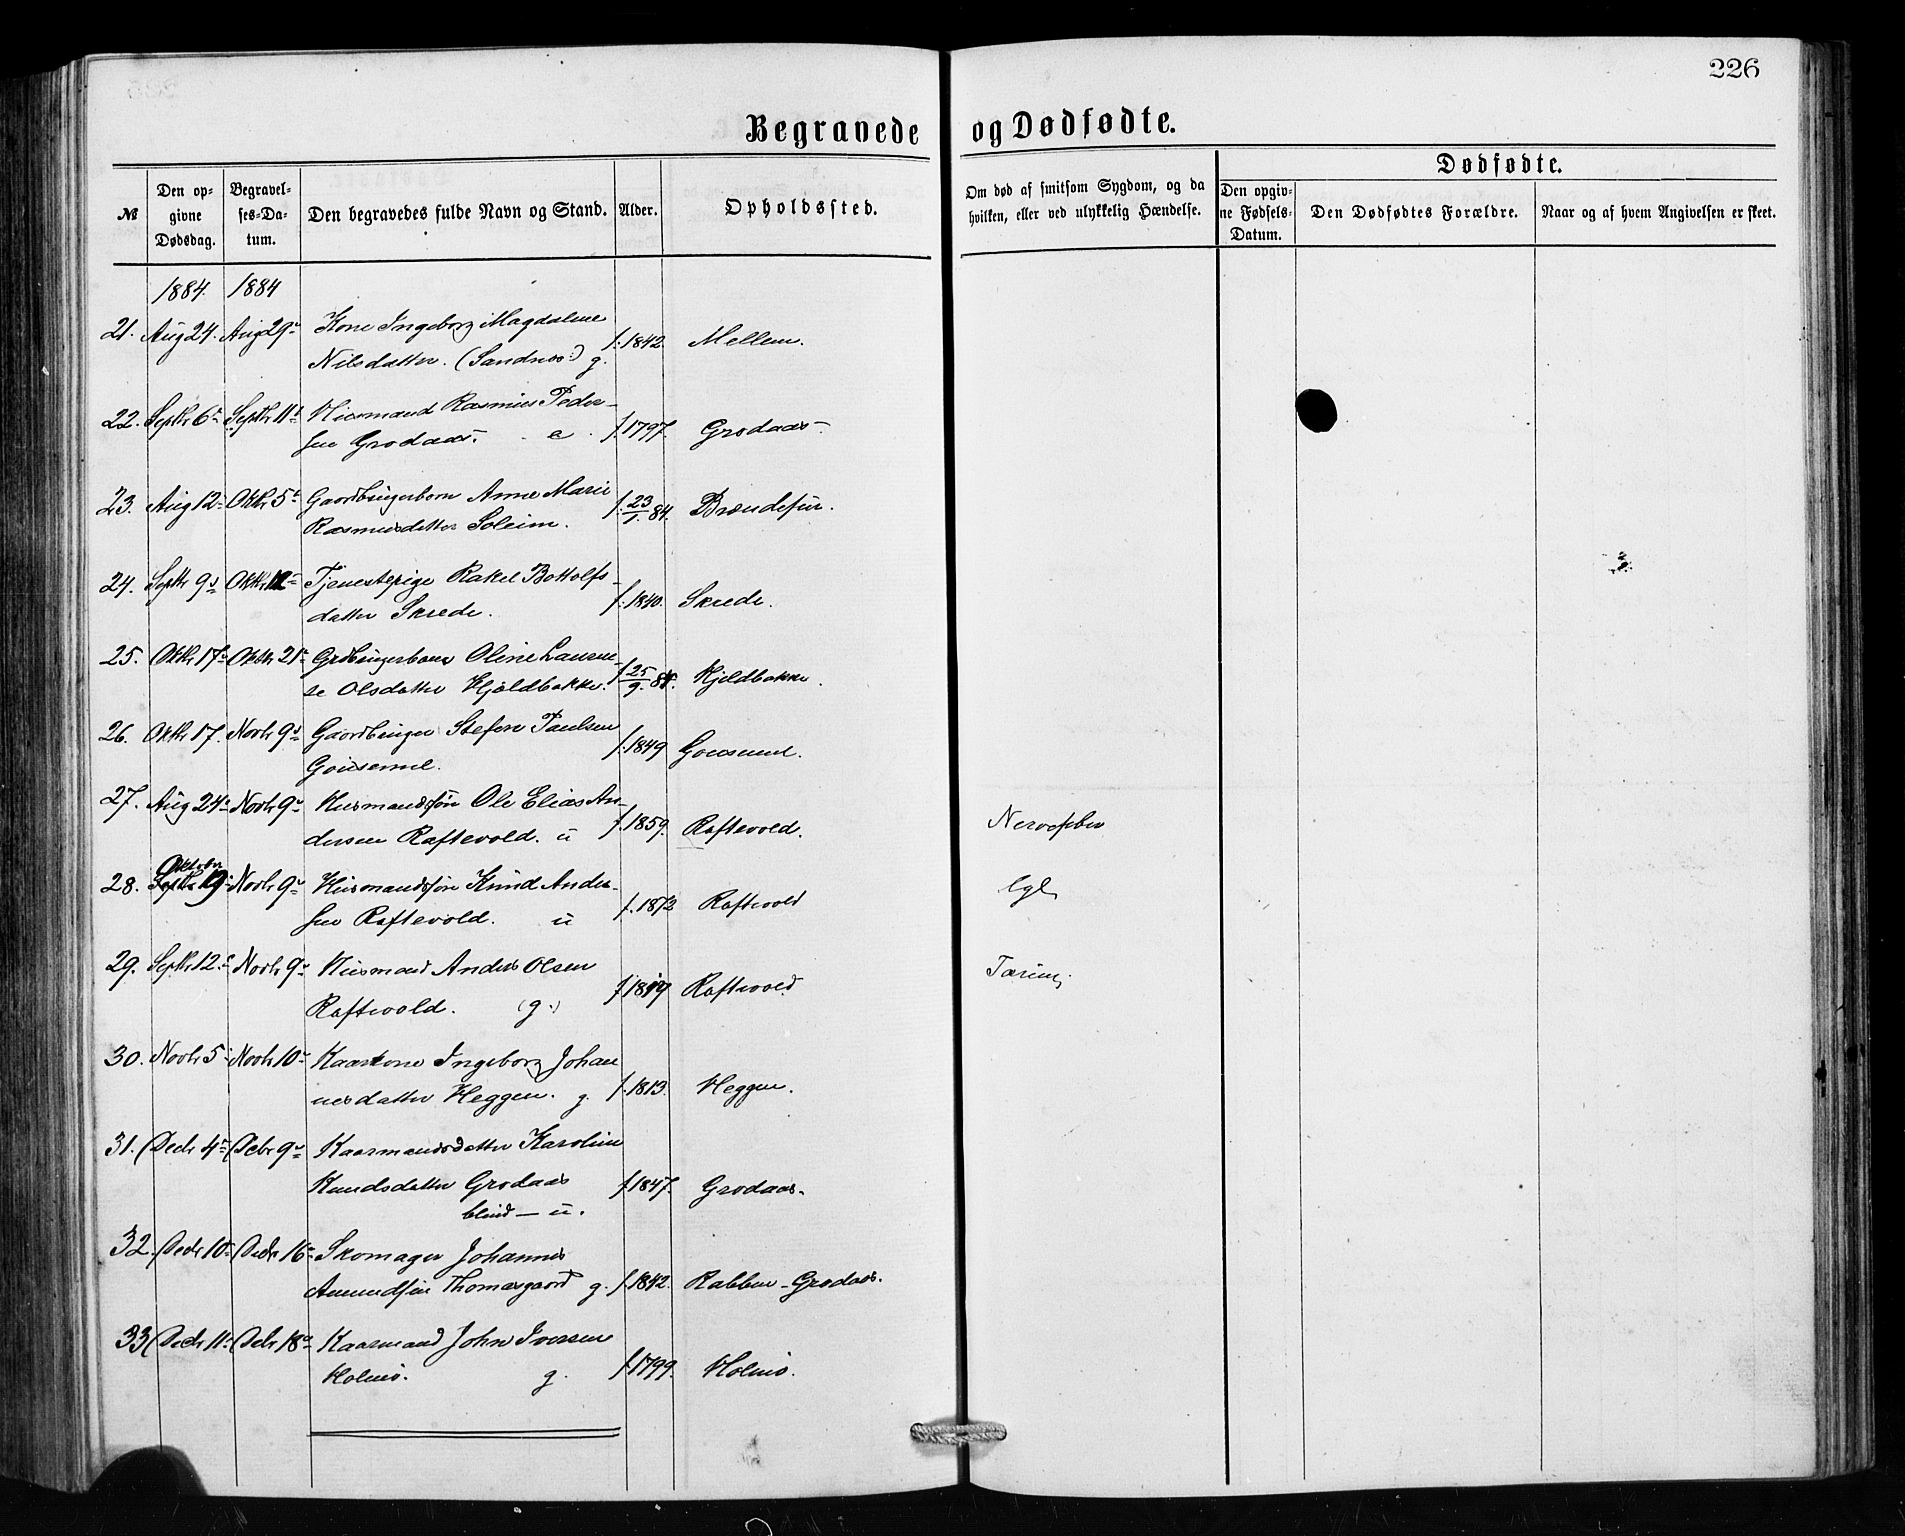 226
Begravede og Dødfødte.
Dødfødte.
№ Den opgivne Dødsdag. Begravelses-Datum. Den begravedes fulde Navn og Stand. Alder. Opholdssted. Om død af smitsom Sygdom, og da hvilken, eller ved ulykkelig Hændelse. Den opgivne Fødsels-Datum. Den Dødfødtes Forældre. Naar og af hvem Angivelsen er skeet.
1884. 1884
21. Aug 24. Aug 29 Kone Ingeborg Magdalene
Nilsdatter. (Sandnes:) g. f. 1842. Mellem.
22. Septbr 6 Septbr 11 Huusmand Rasmus Peder-
sen Grodaas. e. f. 1797. Grodaas.
23. Aug 12 Oktbr 5 Gaardbrugerbarn Anne Marie
Rasmusdatter Soleim. f. 23/1. 84. Brændefur.
24. Septbr 9 Oktbr 12 Tjenestepige Rakel Bottolfs-
datter Skrede. f. 1840. Skrede.
25. Oktbr 17 Oktbr 21 Grdbrugerbarn Oline Lauren-
se Olsdatter Hjeldbakke. f. 25/9. 84. Hjeldbakke.
26. Oktbr 17. Novbr 9 Gaardbruger Stefen Paulsen
Gousemel. f. 1849 Gousemel.
27. Aug 24 Novbr 9 Husmandssøn Ole Elias An-
dersen Raftevold. u f. 1859. Raftevold. Nervefeber
28. Oktober 19 Novbr 9 Husmandssøn Knud Ander-
sen Raftevold. u f. 1872 Raftevold
29. Septbr 12. Novbr 9 Husmand Anders Olsen
Raftevold. (g.) f. 1819 Raftevold Tæring
30. Novbr 5 Novbr 10 Kaarkone Ingeborg Johan
nesdatter Heggen. g. f. 1813. Heggen.
31. Decbr 4 Decbr 9 Kaarmandsdatter Karoline
Knudsdatter Grodaas f. 1847. Grodaas.
blind — u.
32. Decbr 10 Decbr 16 Skomager Johannes
Amundsen Thomasgaard g. f. 1842. Rabben - Grodaas.
33 Decbr 11 Decbr 18 Kaarmand John Iversen
Holmö. g. f. 1799. Holmö.